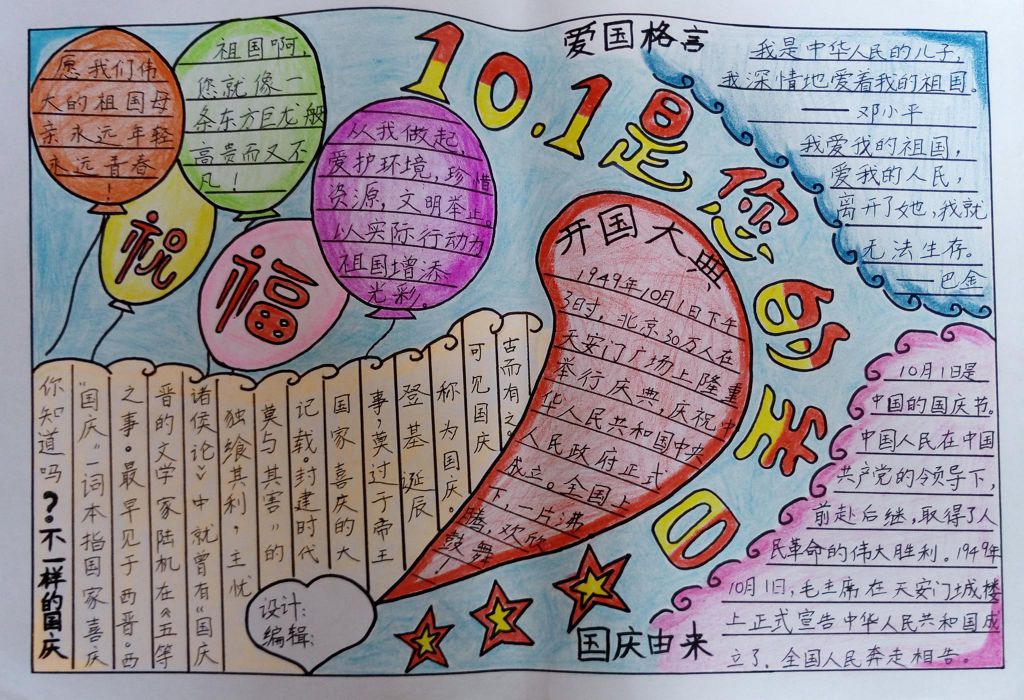 愿我们伟
大的祖国母
亲永远年轻
永远青春
!
祖国啊,
您就像一
条东方巨龙般
高贵而又不
凡!
从我做起
爱护环境,珍惜
资源,文明举止。
以实际行动为
祖国增添
光彩。
祝
福
10.1是您的生日
爱国格言
我是中华人民的儿子,
我深情地爱着我的祖国。
——邓小平
我爱我的祖国,
爱我的人民,
离开了她,我就
无法生存。
——巴金
开国大典
1949年10月1日下午
3时,北京30万人在
天安门广场上隆重
举行庆典,庆祝中
华人民共和国中央
人民政府正式
成立。全国上
下,一片沸
腾,欢欣
鼓舞!
你知道吗?不一样的国庆
“国庆”一词本指国家喜庆
之事。最早见于西晋。西
晋的文学家陆机在《五等
诸侯论》中就曾有“国庆
独飨其利,主忧
莫与其害”的
记载。封建时代
国家喜庆的大
事,莫过于帝王
登基诞辰
称为国庆。
可见国庆
古而有之。
设计:
编辑:
国庆由来
10月1日是
中国的国庆节。
中国人民在中国
共产党的领导下,
前赴后继,取得了人
民革命的伟大胜利。1949年
10月1日,毛主席在天安门城楼
上正式宣告中华人民共和国成
立了,全国人民奔走相告。